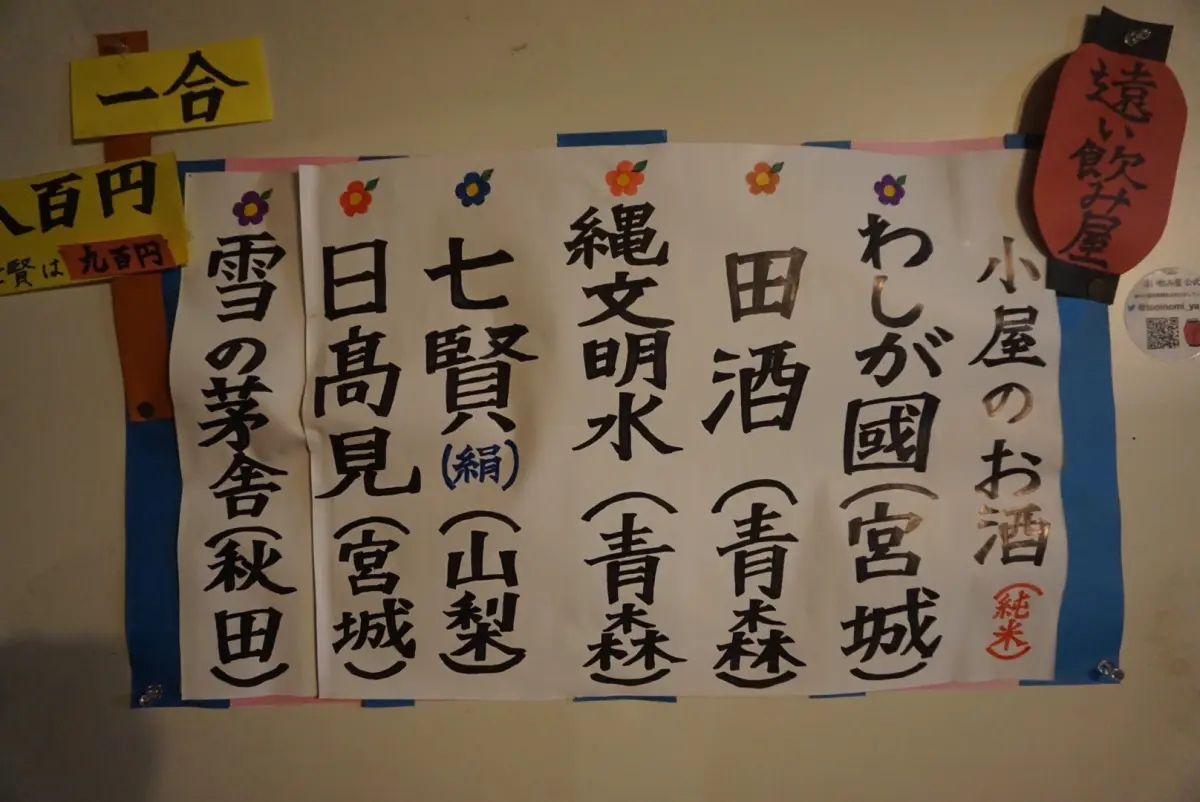 遠い飲み屋
小屋のお酒(純米)
わしが國(宮城)
田酒(青森)
縄文明水(青森)
七賢(絹)(山梨)
日髙見(宮城)
雪の茅舎(秋田)
一合
八百円
賢は九百円